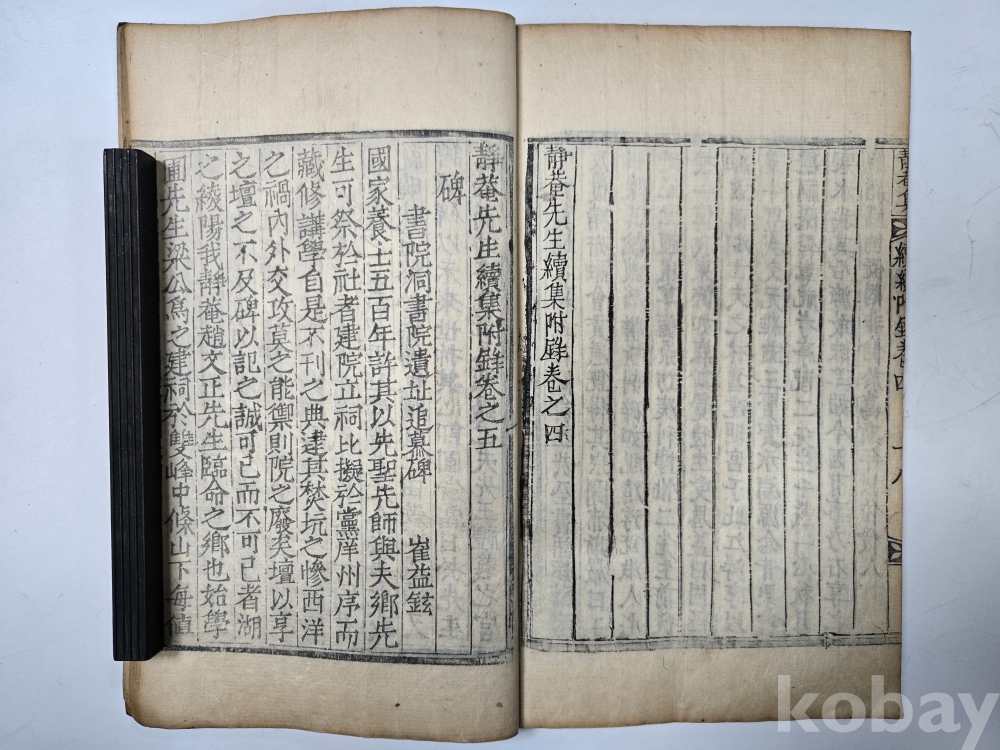 靜菴集
續集附錄卷四
十八
靜菴先生續集附錄卷之四
靜菴先生續集附錄卷之五
碑
書院洞書院遺址追慕碑
崔益鉉
國家養士五百年許其以先聖先師與夫鄉先
生可祭於社者建院立祠比擬於黨庠州序而
藏修講學自是不刊之典逮其焚坑之慘西洋
之禍內外交攻莫之能禦則院之廢矣壇以享
之壇之不及碑以記之誠可已而不可已者湖
之綾陽我靜菴趙文正先生臨命之鄉也始學
圃先生梁公爲之建祠於雙峰中條山下每値
kobay